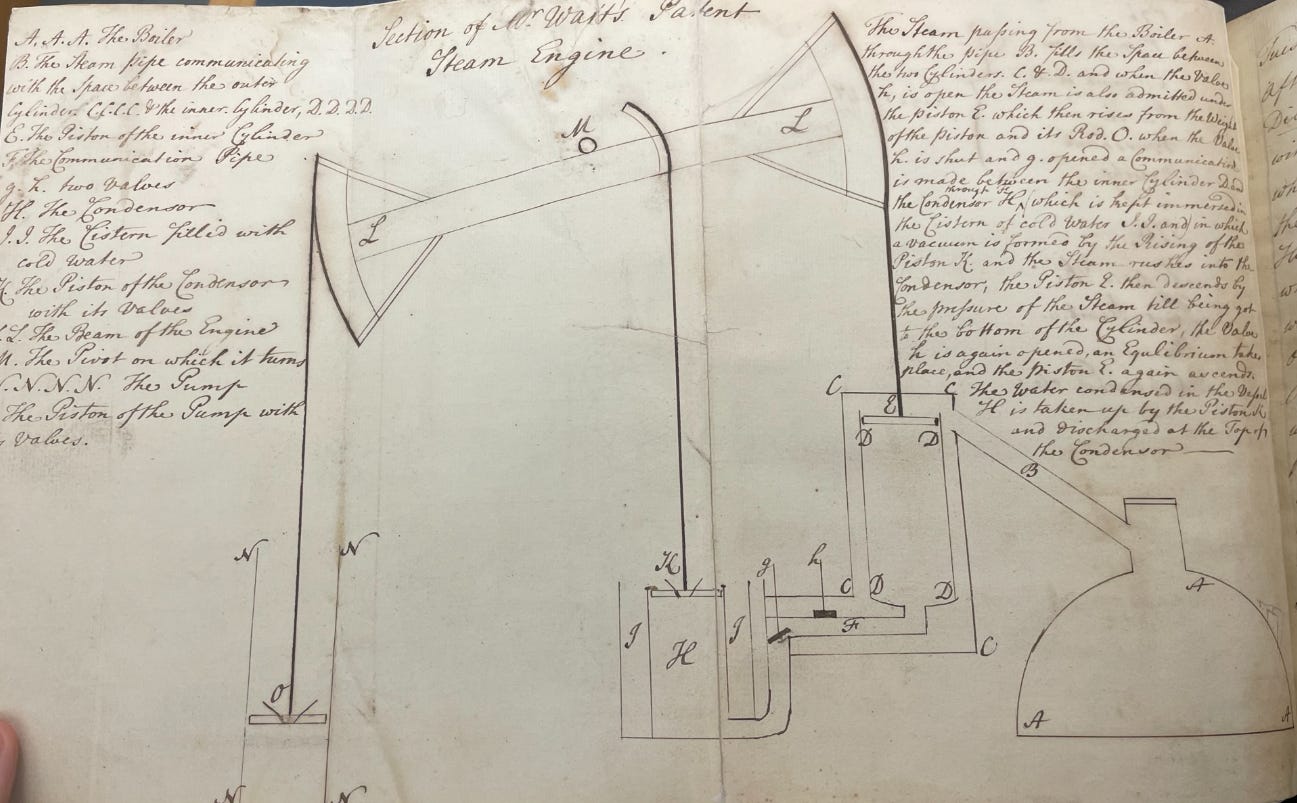 Section of Mr Watt's Patent
Steam Engine.
A, A, A. The Boiler
B. The Steam pipe communicating
with the Space between the outer
Cylinder C.C.C.C & the inner Cylinder, D.D.D.D
E. The Piston of the inner Cylinder
F. The Communication Pipe
g. h. two valves
H. The Condensor
I.I. The Cistern filled with
cold water
K. The Piston of the Condensor
with its valves
L. The Beam of the Engine
M. The Pivot on which it turns
N.N.N. The Pump
The Piston of the Pump with
valves.
The Steam passing from the Boiler A
through the pipe B. fills the Space between
the two Cylinders. C. & D. and when the Valve
h, is open the Steam is also admitted under
the piston E. which then rises from the Wight
of the piston and its Rod. O. when the Valve
h. is shut and g. opened a Communication
is made between the inner Cylinder D. and
the Condensor H, through F, which is kept immersed in
the Cistern of cold water I.I. and in which
a vacuum is formed by the Rising of the
Piston K. and the Steam rushes into the
Condensor, the Piston E. then descends by
the pressure of the Steam till being got
to the bottom of the Cylinder, the Valve
h is again opened, an Equlibrium takes
place, and the Piston E. again ascends.
The Water condensed in the Vessel
H is taken up by the Piston K
and discharged at the Top of
the Condensor
M
L
L
C
C
E
D
D
B
N
N
K
g
h
C
D
D
A
I
I
H
F
C
O
A
A
N
N